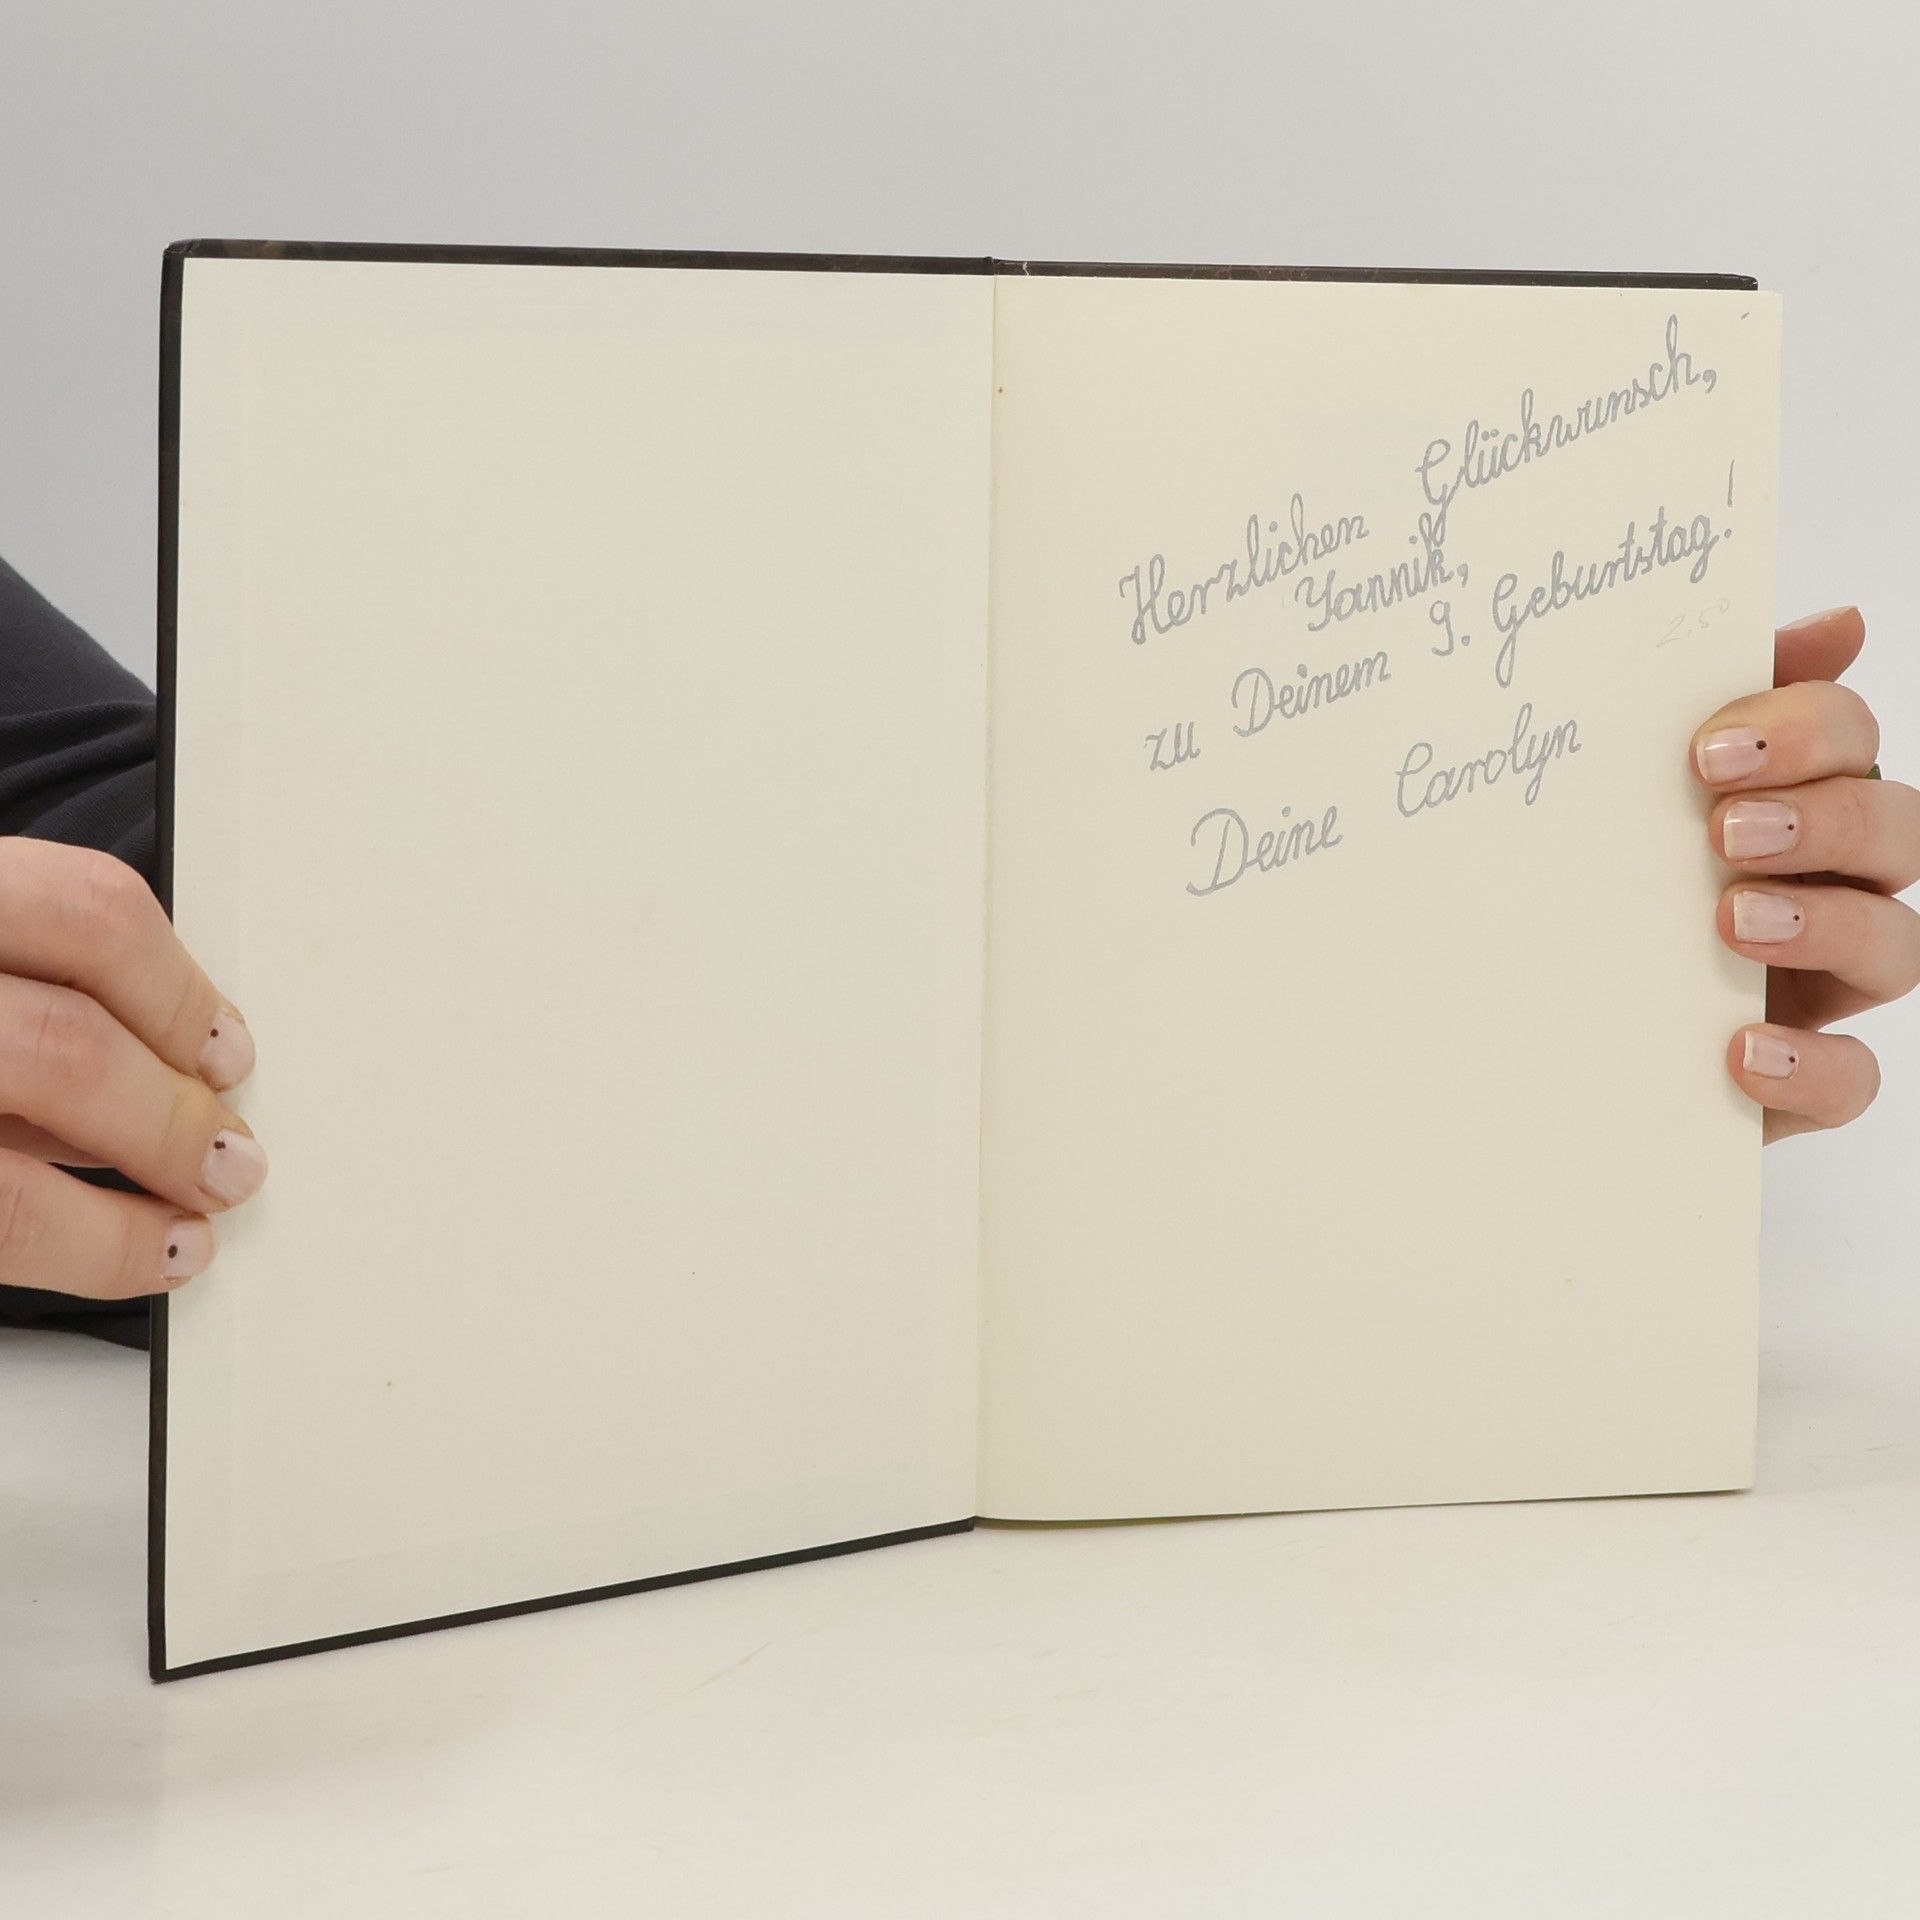 Herzlichen Glückwunsch,
Yannik,
zu Deinem 9. Geburtstag!
2,50
Deine Carolyn